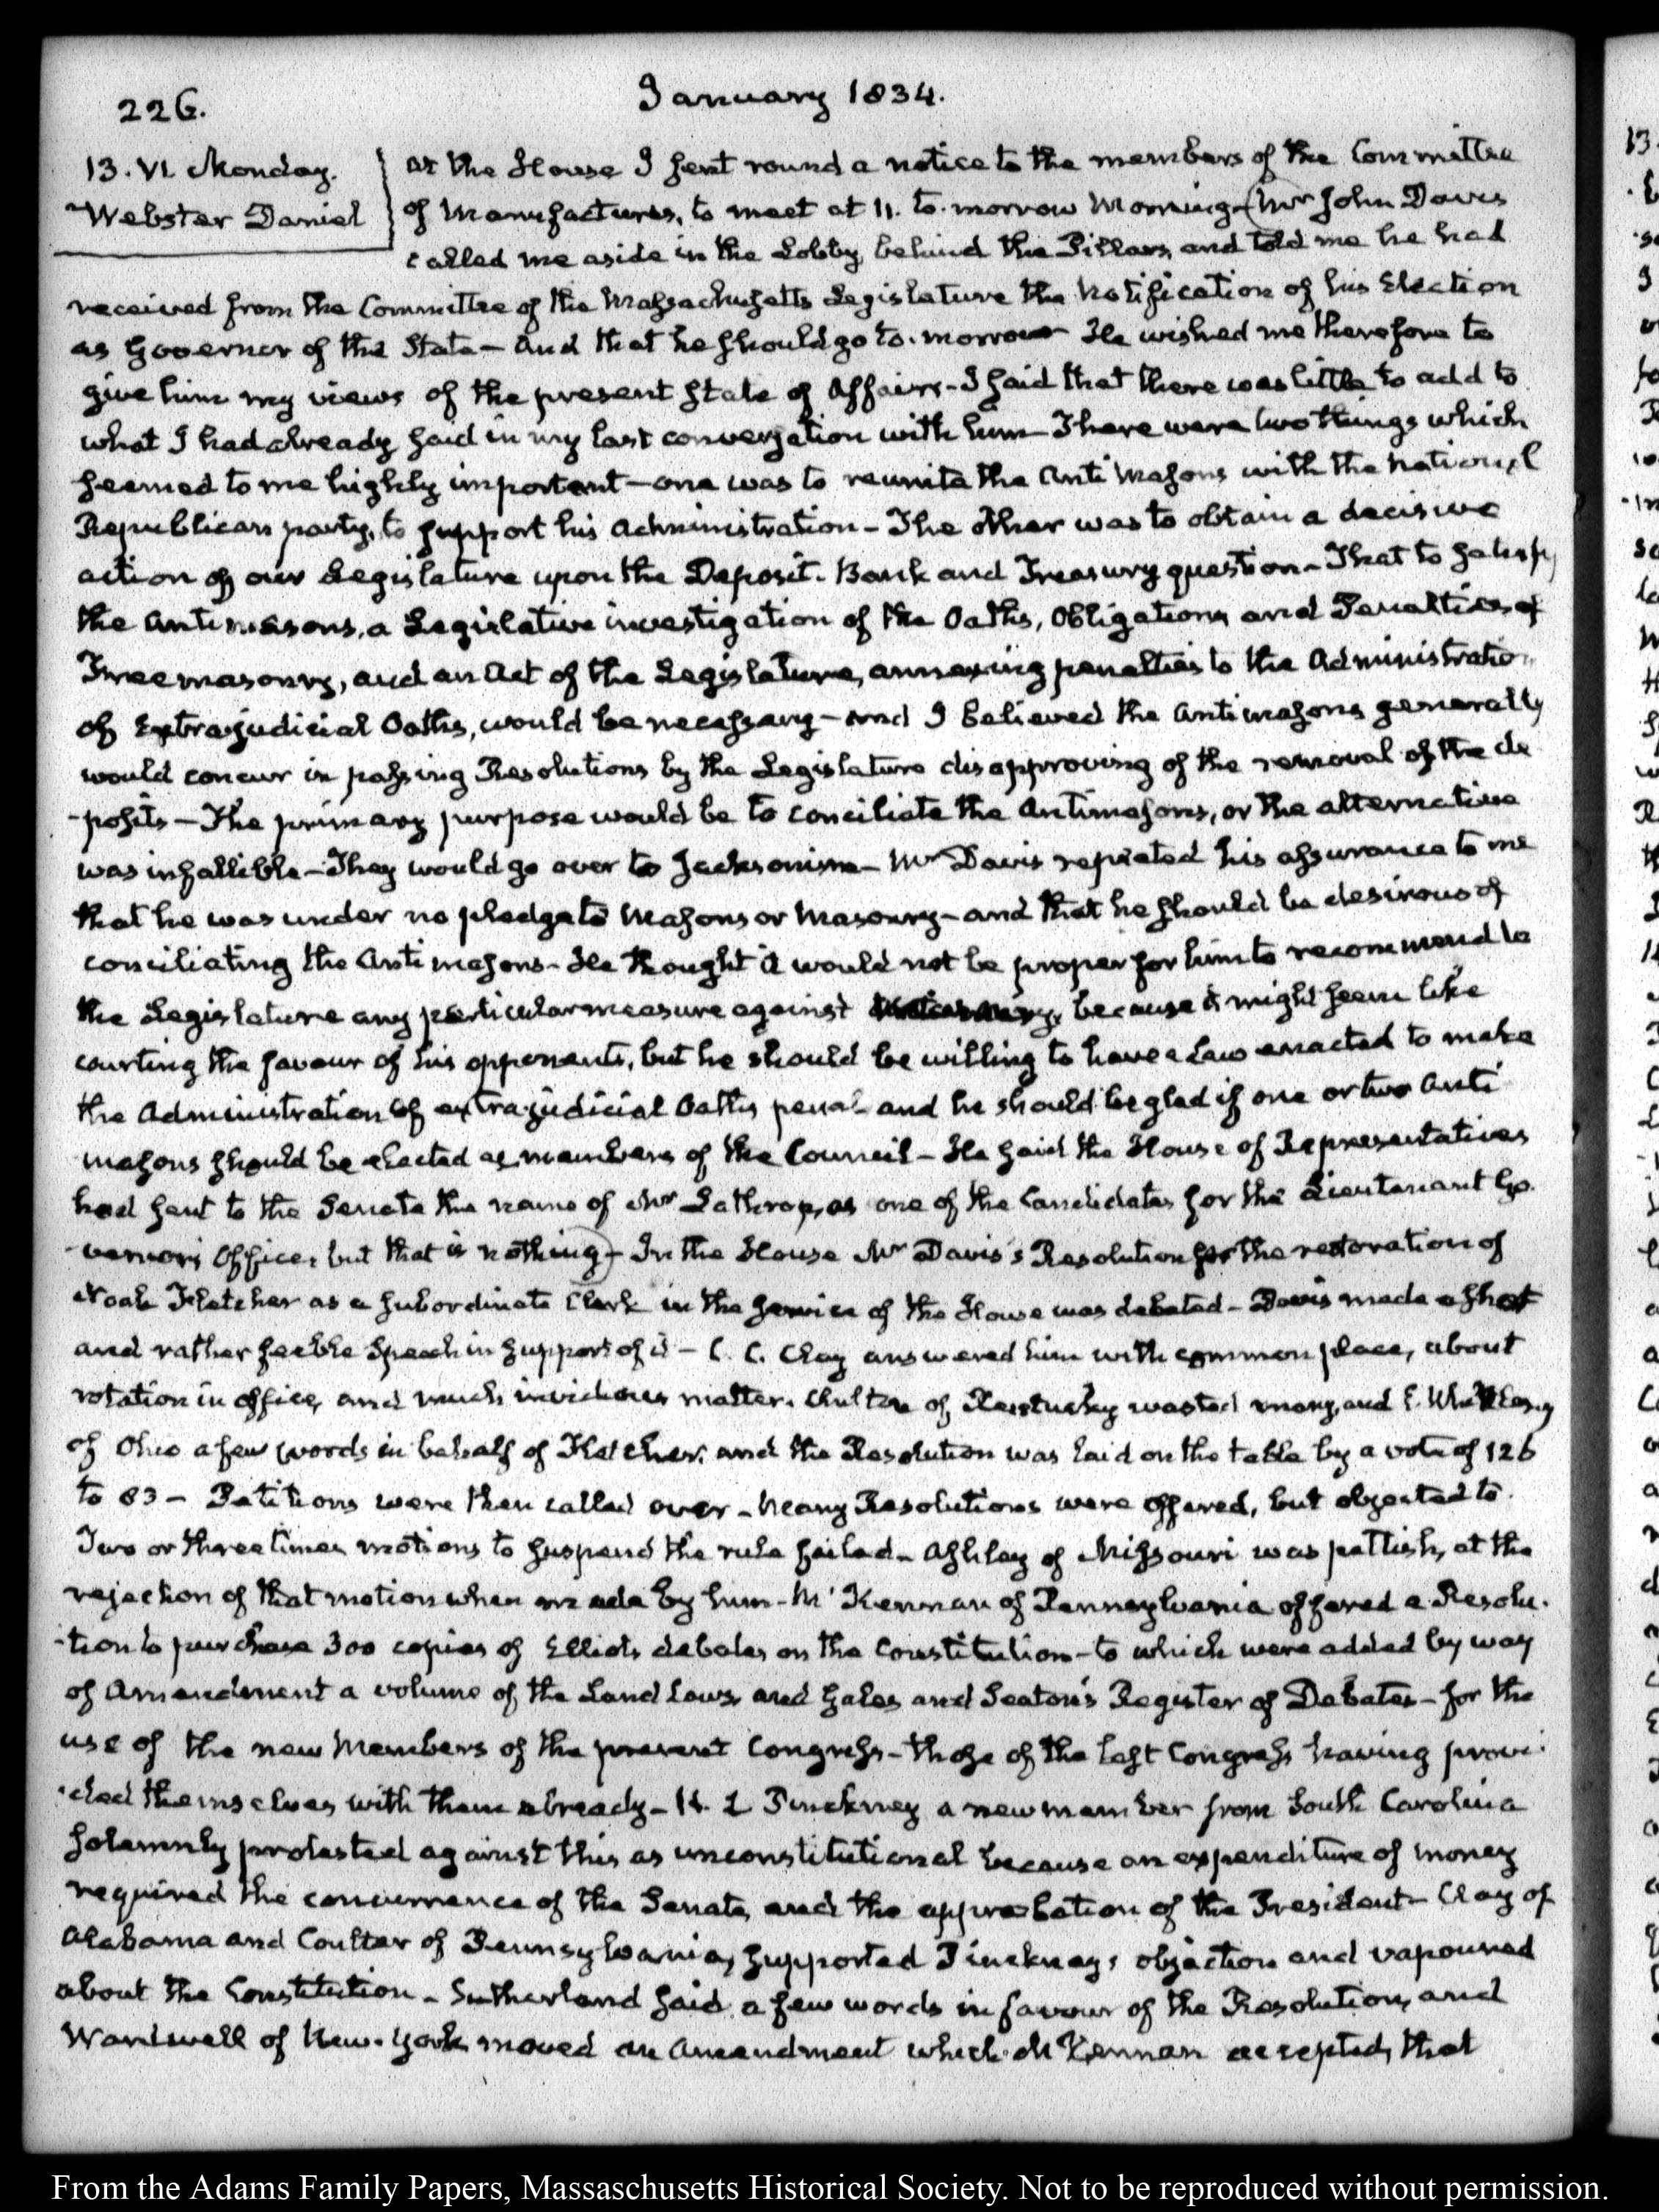 226.
January 1834.
13. VI. Monday.
Webster Daniel
At the House I sent round a notice to the members of the Committee
of Manufactures, to meet at 11. to-morrow Morning—Mr John Davis
called me aside in the Lobby, behind the Pillars, and told me he had
received from the Committee of the Massachusetts Legislature the Notification of his Election
as Governor of the State— And that he should go to-morrow— He wished me therefore to
give him my views of the present State of Affairs— I said that there was little to add to
what I had already said in my last conversation with him— There were two things which
seemed to me highly important— one was to reunite the Anti Masons with the National
Republican party, to support his Administration— The other was to obtain a decisive
action of our Legislature upon the Deposit. Bank and Treasury question— That to satisfy
the Antimasons, a Legislative investigation of the Oaths, Obligations and Penalties of
Freemasonry, and an Act of the Legislature, annexing penalties to the Administration
of Extrajudicial Oaths, would be necessary— And I believed the Antimasons generally
would concur in passing Resolutions by the Legislature disapproving of the removal of the de
-posits— The primary purpose would be to conciliate the Antimasons, or the alternative
was infallible— They would go over to Jacksonism— Mr Davis repeated his assurance to me
that he was under no pledge to Masons or Masonry— and that he should be desirous of
conciliating the Antimasons— He thought it would not be proper for him to recommend to
the Legislature any particular measure against because it might seem like
courting the favour of his opponents, but he should be willing to have a Law enacted to make
the Administration of extrajudicial Oaths penal— and he should be glad if one or two Anti
masons should be elected as members of the Council— He said the House of Representatives
had sent to the Senate the name of Mr Lathrop, as one of the Candidates for the Lieutenant Go-
-vernor's Office, but that is nothing— In the House Mr Davis's Resolution for the restoration of
Noah Fletcher as a subordinate Clerk in the service of the House was debated— Davis made a short
and rather feeble Speech in support of it— C. C. Clay answered him with common place, about
rotation in office, and much invidious matter. Chilton of Kentucky wasted many, and E. Whittlesey
of Ohio a few words in behalf of Fletcher, and the Resolution was laid on the table by a vote of 126
to 83— Petitions were then called over— Many Resolutions were offered, but objected to.
Two or three times motions to suspend the rule failed— Ashley of Missouri was pettish, at the
rejection of that motion when made by him— Mc Kennan of Pennsylvania offered a Resolu-
-tion to purchase 300 copies of Elliots debates on the Constitution— to which were added by way
of Amendment a volume of the Land Laws, and Gales and Seaton's Register of Debates— for the
use of the new Members of the present Congress— those of the last Congress having provi-
-ded themselves with them already— H. L Pinckney a new member from South Carolina
solemnly protested against this as unconstitutional because an expenditure of money
required the concurrence of the Senate, and the approbation of the President— Clay of
Alabama and Coulter of Pennsylvania, supported Pinckney's objection and vapoured
about the Constitution— Sutherland said a few words in favour of the Resolution, and
Wardwell of New-York moved an Amendment which McKennan accepted, that
From the Adams Family Papers, Massaschusetts Historical Society. Not to be reproduced without permission.